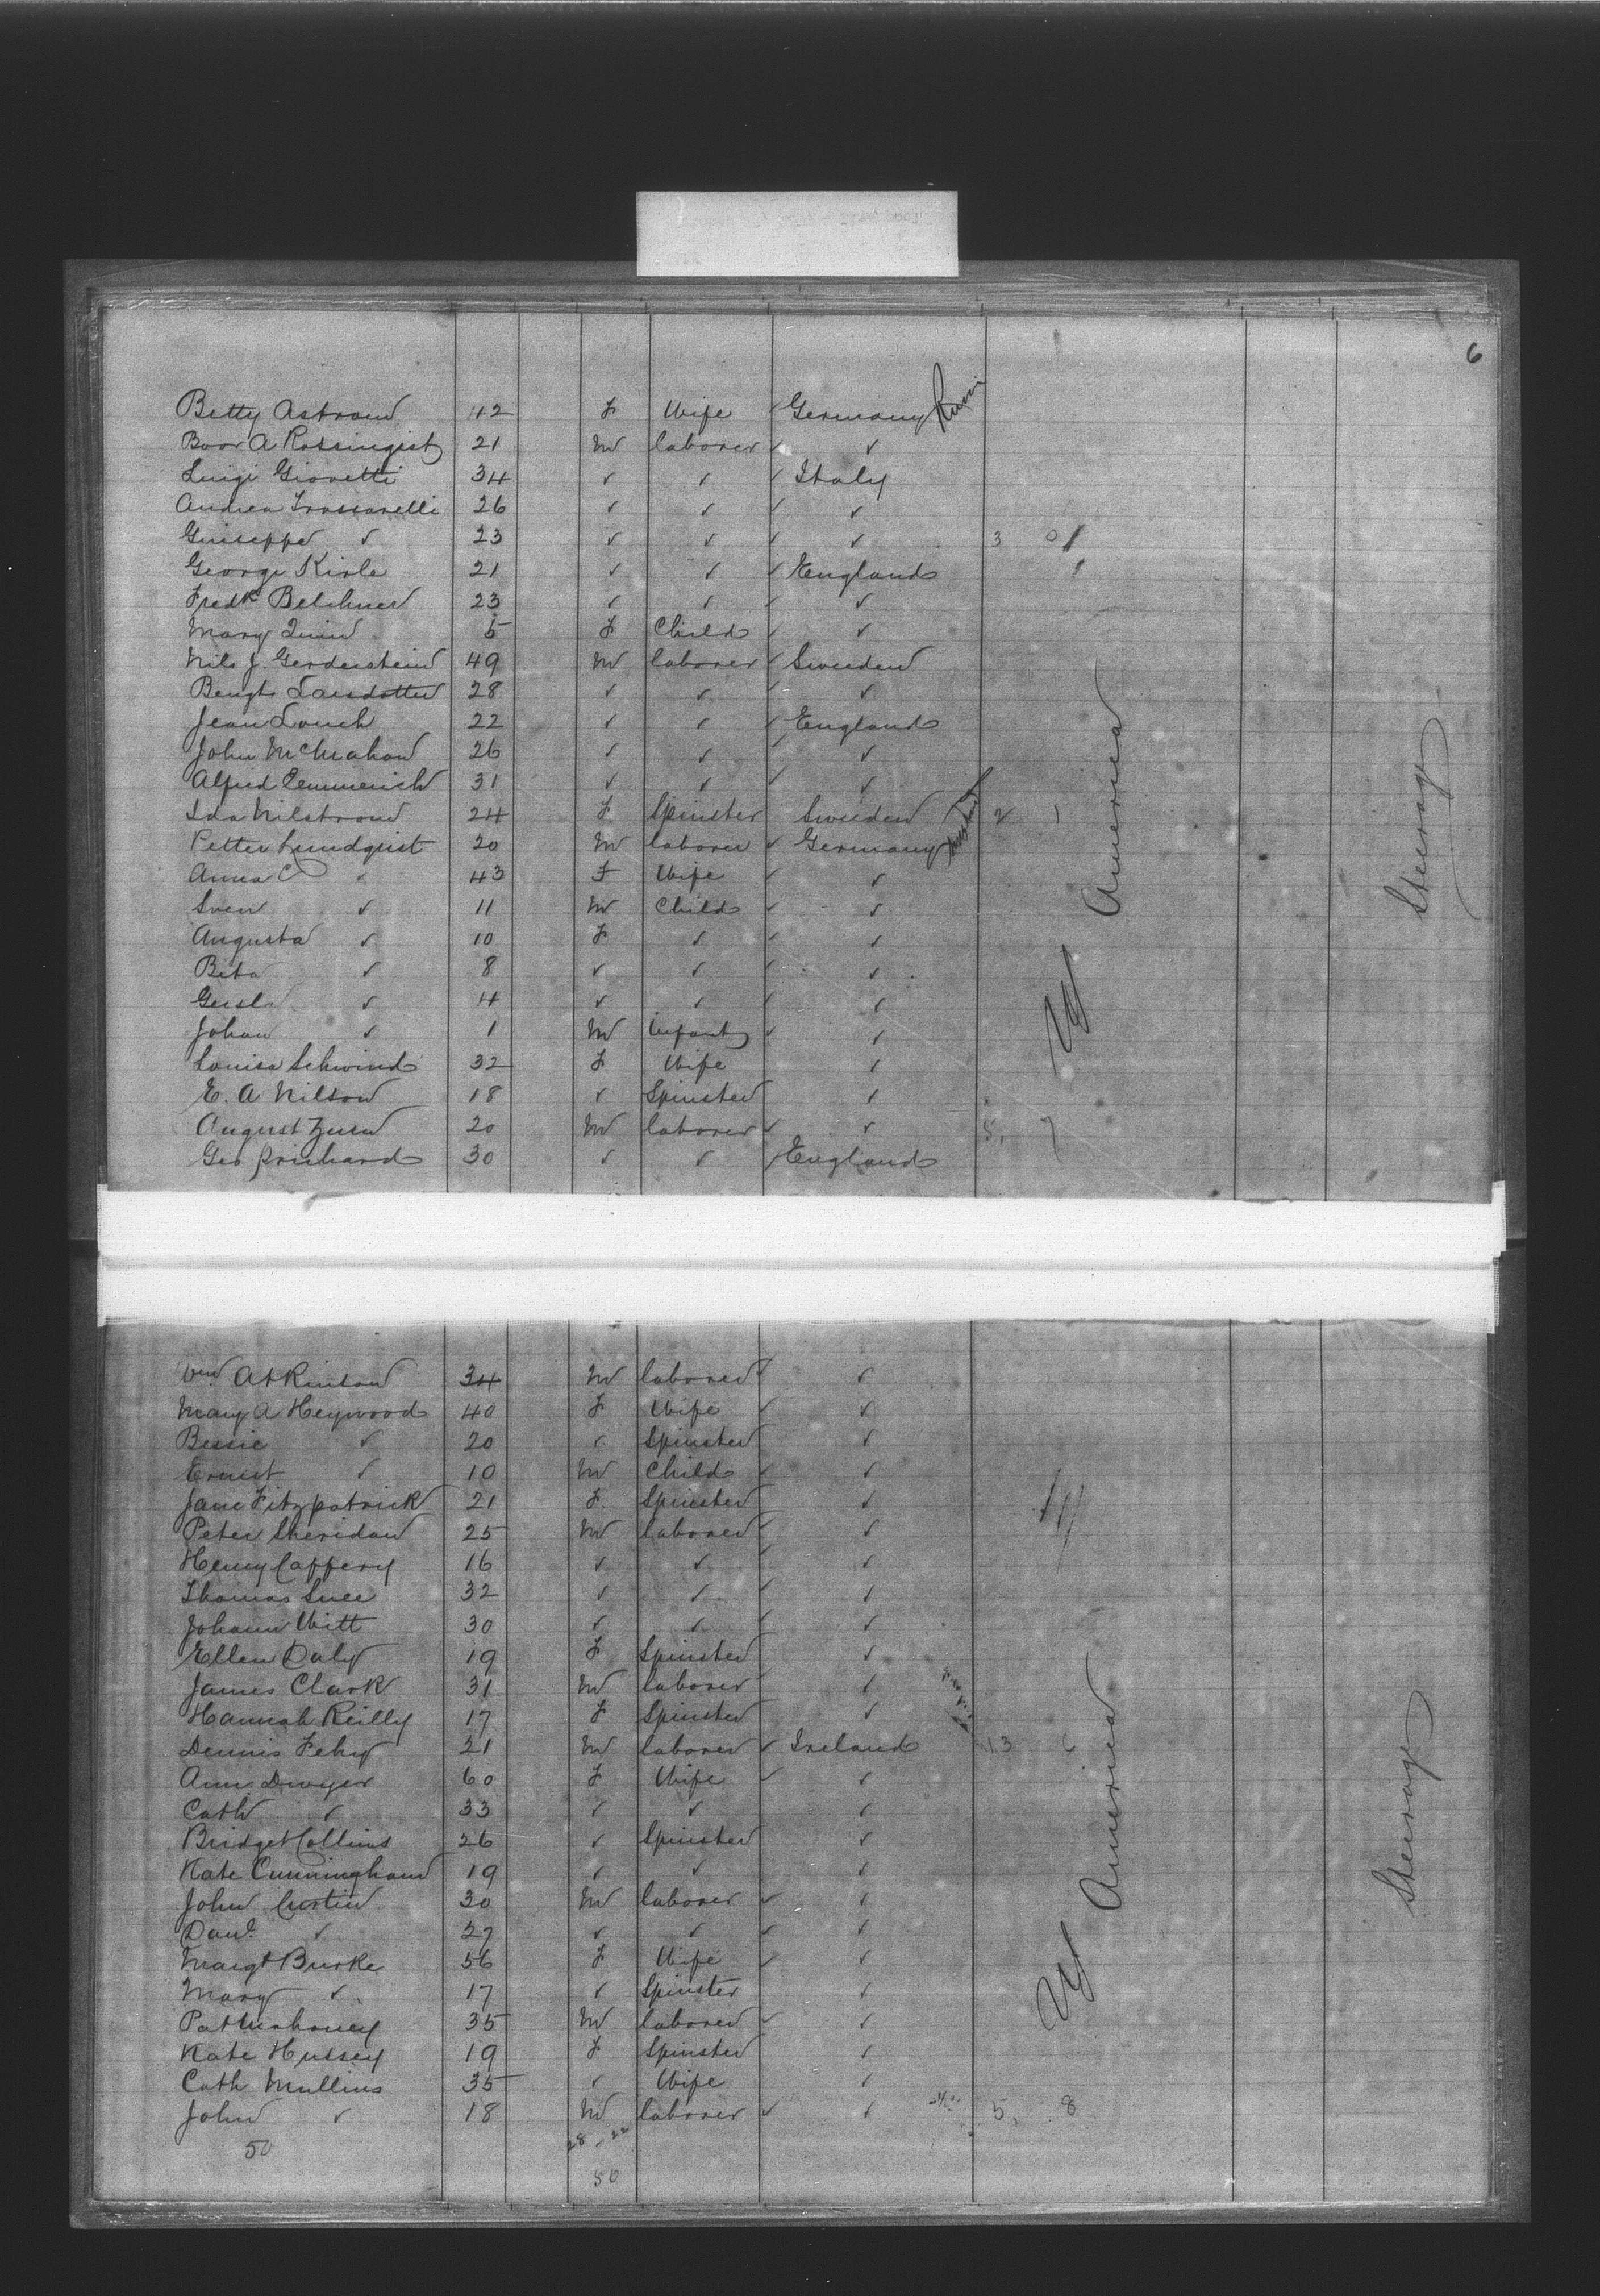 6
Betty Astrand 42 F Wife ✓ Germany
Boor A 21 M laborer ✓ ✓
Luigi Giovetti 34 ✓ ✓ ✓ Italy
Andrea Trossarelli 26 ✓ ✓ ✓ ✓
Guiseppe ✓ 23 ✓ ✓ ✓ ✓ 3 0
George Kirle 21 ✓ ✓ ✓ England
Fredk Belchner 23 ✓ ✓ ✓ ✓
Mary Quin 5 F Child ✓ ✓
Nils J. Gerderstein 49 M laborer ✓ Sweden
Bengt Larsdotter 28 ✓ ✓ ✓ ✓
Jean Louch 22 ✓ ✓ ✓ England
John McMahon 26 ✓ ✓ ✓ ✓
Alfred Emmerich 31 ✓ ✓ ✓ ✓
Ida Nilstrom 24 F Spinster Sweden 2 1
Petter Lundqvist 20 M laborer ✓ Germany
Anna C ✓ 43 F Wife ✓ ✓
Sven ✓ 11 M Child ✓ ✓
Augusta ✓ 10 F ✓ ✓ ✓
Beta ✓ 8 ✓ ✓ ✓ ✓
✓ 4 ✓ ✓ ✓ ✓
Johan ✓ 1 M Infant ✓ ✓
Louisa Schwind 32 F Wife ✓
E. A Nilson 18 ✓ Spinster ✓
August Zurn 20 M laborer ✓ ✓ 5, 7
Geo Prichard 30 ✓ ✓ England
US America
Steerage
Wm Atkinson 34 M laborer ✓ ✓
Mary A Heywood 40 F Wife ✓ ✓
Bessie ✓ 20 ✓ Spinster ✓
Ernest ✓ 10 M Child ✓ ✓
Jane Fitzpatrick 21 F Spinster ✓
Peter Sheridan 25 M laborer ✓ ✓
Henry Caffery 16 ✓ ✓ ✓ ✓
Thomas Snee 32 ✓ ✓ ✓ ✓
Johann Witt 30 ✓ ✓ ✓ ✓
Ellen Daly 19 F Spinster ✓
James Clark 31 M laborer ✓ ✓
Hannah Reilly 17 F Spinster ✓
Dennis Fehy 21 M laborer ✓ Ireland 13 6
Ann Dwyer 60 F Wife ✓ ✓
Cath ✓ 33 ✓ ✓ ✓
Bridget Collins 26 ✓ Spinster ✓
Kate Cunningham 19 ✓ ✓ ✓
John Curtin 30 M laborer ✓ ✓
Danl ✓ 27 ✓ ✓ ✓ ✓
Margt Burke 56 F Wife ✓ ✓
Mary ✓ 17 ✓ Spinster ✓
Pat Mahoney 35 M laborer ✓ ✓
Kate Hussey 19 F Spinster ✓
Cath Mullins 35 ✓ Wife ✓
John ✓ 18 M laborer ✓ ✓ 5, 8
US America
Steerage
50 28 - 22
50